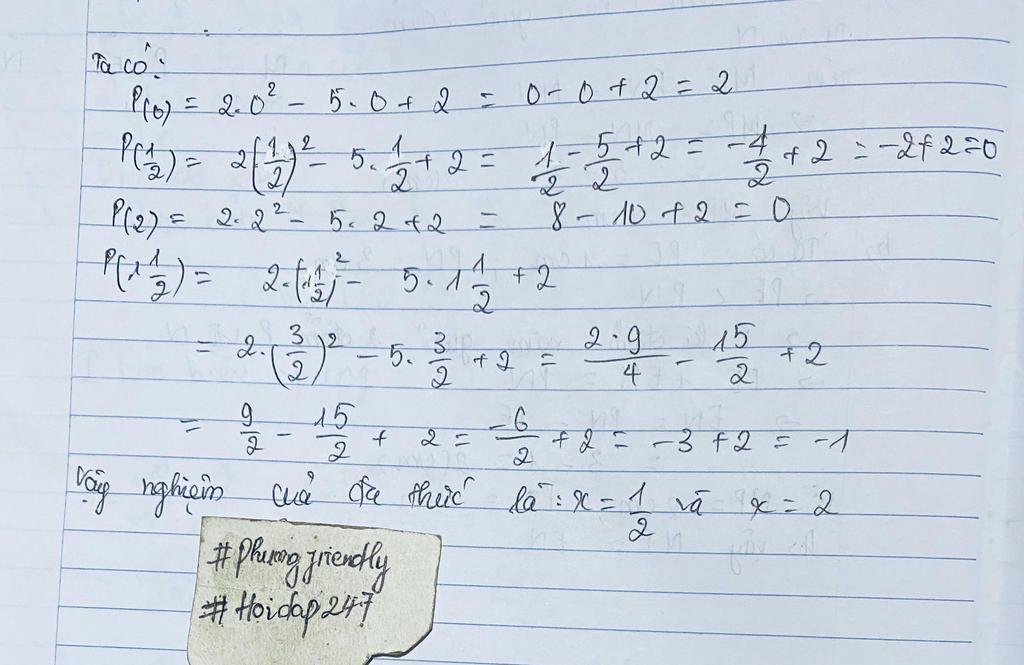 Ta có:
P(0) = 2.0² - 5.0 + 2 = 0 - 0 + 2 = 2
P(1/2) = 2(1/2)² - 5.1/2 + 2 = 1/2 - 5/2 + 2 = -4/2 + 2 = -2+2=0
P(2) = 2.2² - 5.2 + 2 = 8 - 10 + 2 = 0
P(1 1/2) = 2.(1 1/2)² - 5.1 1/2 + 2
= 2.(3/2)² - 5.3/2 + 2 = 2.9/4 - 15/2 + 2
= 9/2 - 15/2 + 2 = -6/2 + 2 = -3 + 2 = -1
Vậy nghiệm của đa thức là: x = 1/2 và x = 2
#Phuongfriendly
#Hoidap247